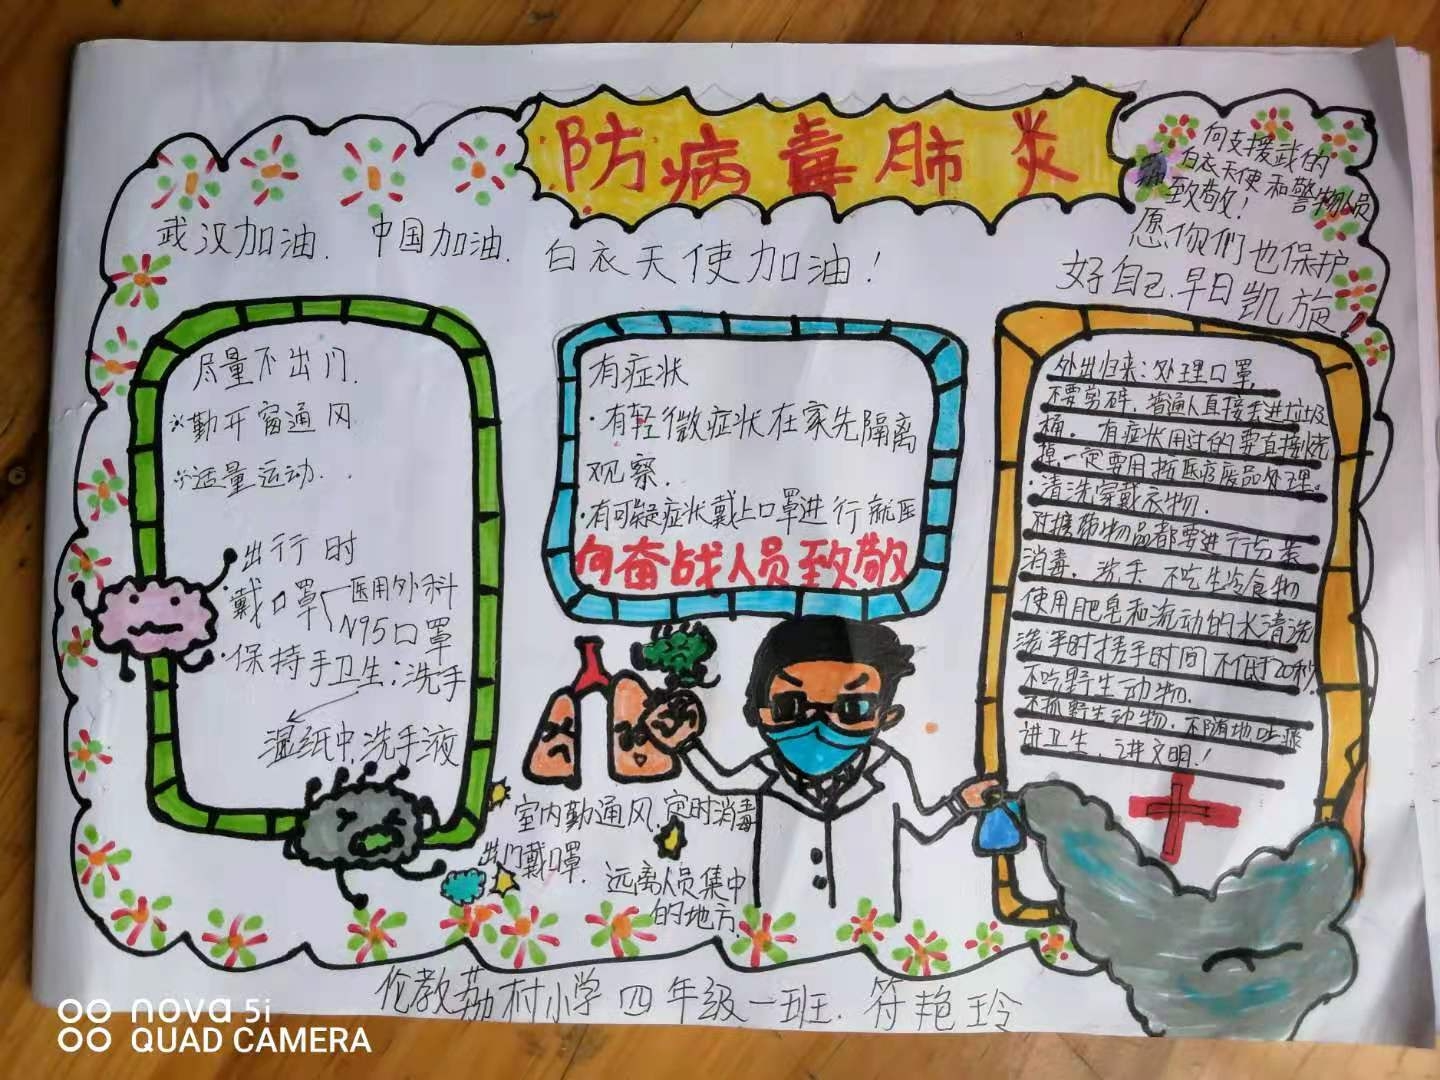 防病毒肺炎
向支援武的
白衣天使和警物人员
致敬!
愿你们也保护
好自己.早日凯旋!
武汉加油. 中国加油. 白衣天使加油!
尽量不出门.
※勤开窗通风
※适量运动..
出行时
·戴口罩 医用外科
N95口罩
·保持手卫生:洗手
湿纸巾,洗手液
有症状
·有轻微症状在家先隔离
观察.
·有可疑症状戴上口罩进行就医
向奋战人员致敬
外出归来:处理口罩,
不要剪碎,普通人直接丢进垃圾
桶. 有症状用过的要直接烧
掉一定要用按医疗废品处理。
·清洗穿戴衣物.
对接带物品都要进行分类
消毒. 洗手 不吃生冷食物
使用肥皂和流动的水清洗
洗手时搓手时间不低于20秒
不吃野生动物.
不抓野生动物.不随地吐痰
讲卫生 讲文明!
室内勤通风.定时消毒
出门戴口罩. 远离人员集中
的地方.
伦教荔村小学四年级一班.符艳玲
nova 5i
QUAD CAMERA